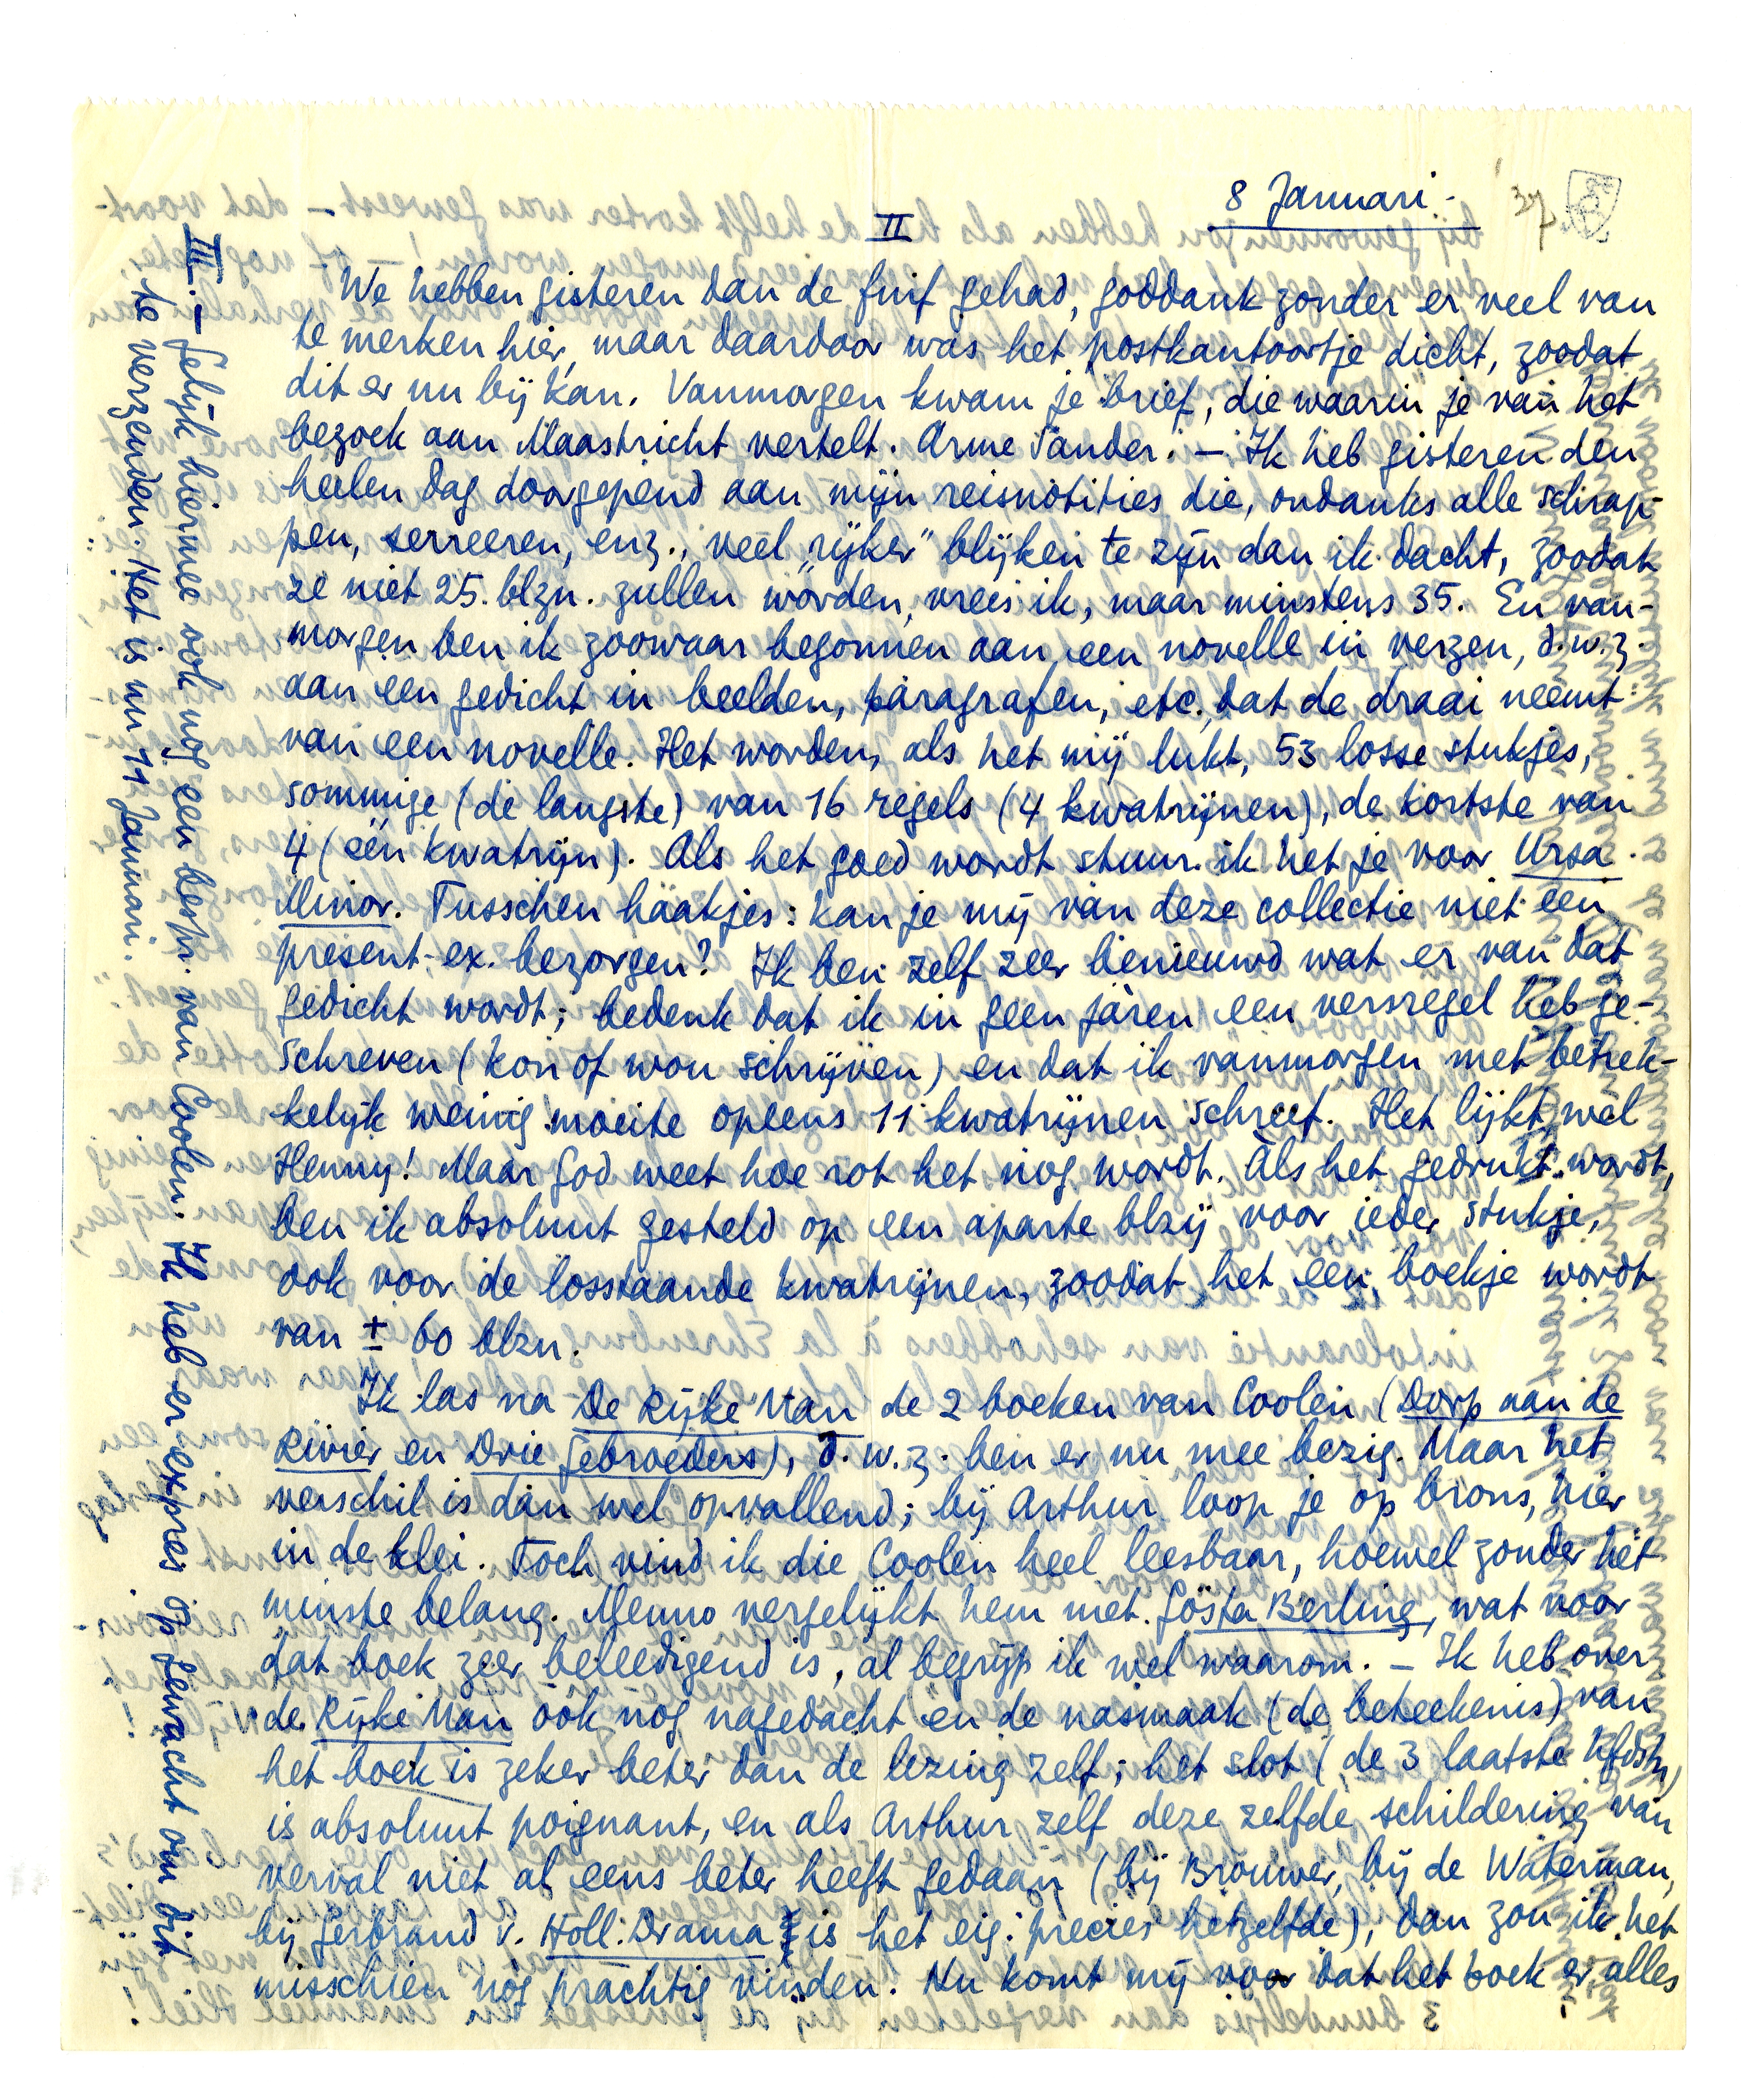 8 Januari -
37
II
We hebben gisteren dan de fuif gehad, goddank zonder er veel van
te merken hier, maar daardoor was het postkantoortje dicht, zoodat
dit er nu bij kan. Vanmorgen kwam je brief, die waarin je van het
bezoek aan Maastricht vertelt. Arme Sander. — Ik heb gisteren den
heelen dag doorgepend aan mijn reisnotities die, ondanks alle schrap-
pen, serreeren, enz., veel „rijker” blijken te zijn dan ik dacht, zoodat
ze niet 25 blzn. zullen worden, vrees ik, maar minstens 35. En van-
morgen ben ik zoowaar begonnen aan een novelle in verzen, d.w.z.
aan een gedicht in beelden, paragrafen, etc. dat de draai neemt
van een novelle. Het worden, als het mij lukt, 53 losse stukjes,
sommige (de langste) van 16 regels (4 kwatrijnen), de kortste van
4 (één kwatrijn). Als het goed wordt stuur ik het je voor Ursa
Minor. Tusschen haakjes: kan je mij van deze collectie niet een
present-ex. bezorgen? Ik ben zelf zeer benieuwd wat er van dat
gedicht wordt; bedenk dat ik in geen jaren een versregel heb ge-
schreven (kon of wou schrijven) en dat ik vanmorgen met betrek-
kelijk weinig moeite opeens 11 kwatrijnen schreef. Het lijkt wel
Henny! Maar God weet hoe rot het nog wordt. Àls het gedrukt wordt,
ben ik absoluut gesteld op een aparte blzij voor ieder stukje,
ook voor de losstaande kwatrijnen, zoodat het een boekje wordt
van ± 60 blzn.
Ik las na De Rijke Man de 2 boeken van Coolen (Dorp aan de
Rivier en Drie Gebroeders), d.w.z. ben er nu mee bezig. Maar het
verschil is dan wel opvallend; bij Arthur loop je op brons, hier
in de klei. Toch vind ik die Coolen heel leesbaar, hoewel zonder het
minste belang. Menno vergelijkt hem met Gösta Berling, wat voor
dat boek zeer beleedigend is, al begrijp ik wel waarom. — Ik heb over
de Rijke Man óók nog nagedacht en de nasmaak (de beteekenis) van
het boek is zeker beter dan de lezing zelf; het slot (de 3 laatste hfdstn)
is absoluut poignant, en als Arthur zelf deze zelfde schildering van
verval niet al eens beter heeft gedaan (bij Brouwer, bij de Waterman,
bij Gerbrand v. Holl. Drama is het eig. precies hetzelfde), dan zou ik het
misschien nog prachtig vinden. Nu komt mij voor dat het boek er alles
III. — Gelijk hiermee ook nog een bespr. van Coolen. Ik heb er expres op gewacht om dit
te verzenden. Het is nu 11 Januari.